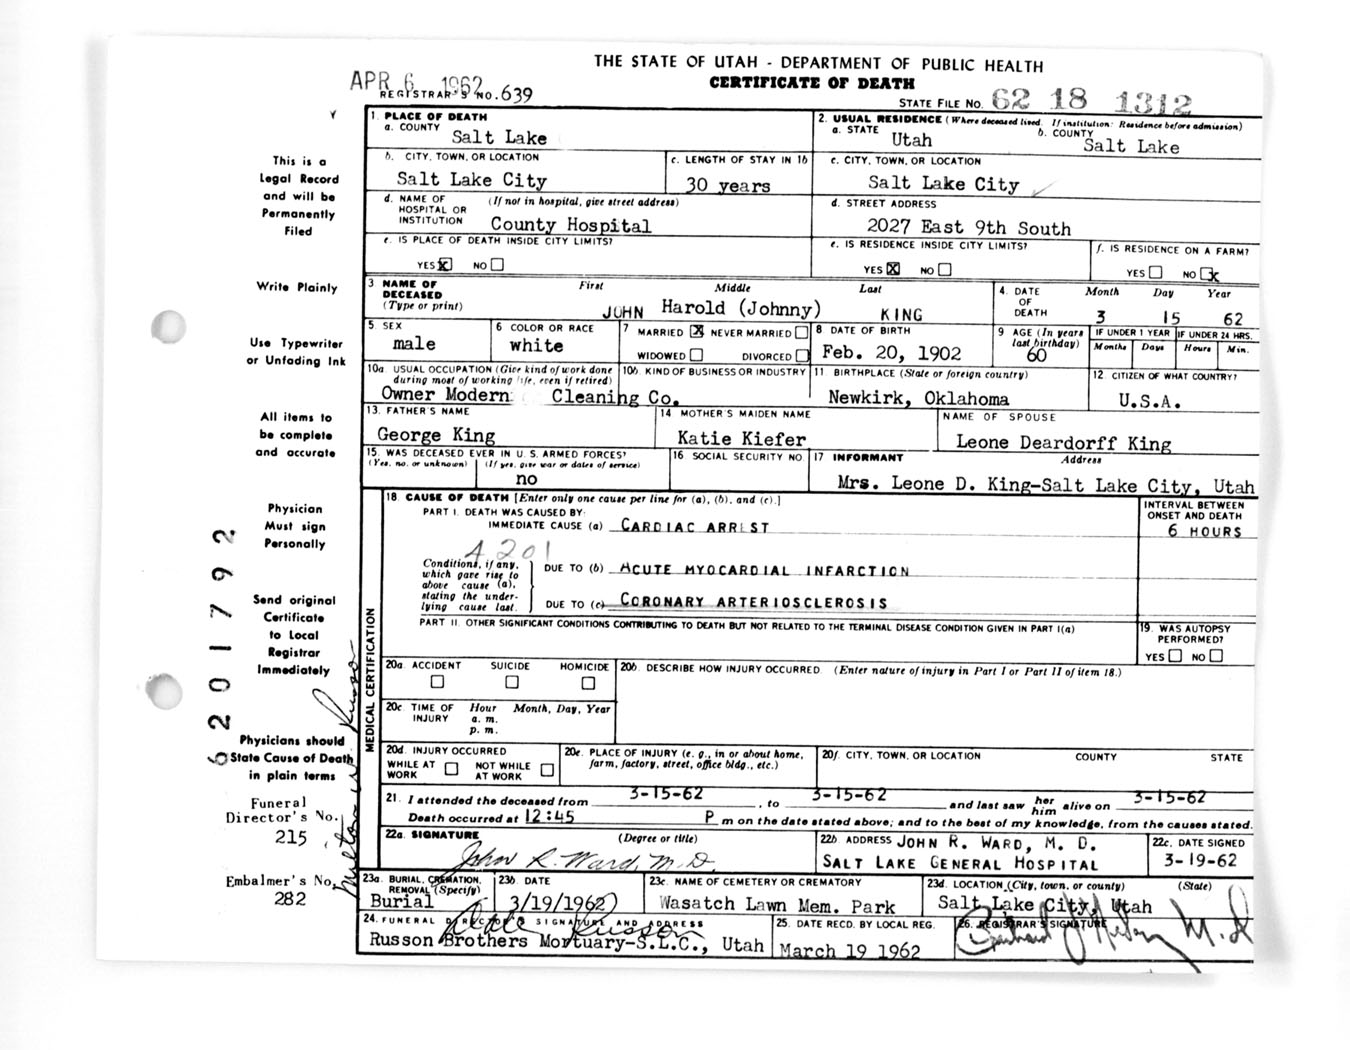 THE STATE OF UTAH - DEPARTMENT OF PUBLIC HEALTH
CERTIFICATE OF DEATH
APR 6 1962
REGISTRAR'S NO. 639
STATE FILE NO. 62 18 1312
1. PLACE OF DEATH
a. COUNTY Salt Lake
2. USUAL RESIDENCE (Where deceased lived. If institution: Residence before admission)
a. STATE Utah b. COUNTY Salt Lake
b. CITY, TOWN, OR LOCATION Salt Lake City
c. LENGTH OF STAY IN 1b 30 years
c. CITY, TOWN, OR LOCATION Salt Lake City
d. NAME OF HOSPITAL OR INSTITUTION (If not in hospital, give street address) County Hospital
d. STREET ADDRESS 2027 East 9th South
e. IS PLACE OF DEATH INSIDE CITY LIMITS?
YES X NO
e. IS RESIDENCE INSIDE CITY LIMITS?
YES X NO
f. IS RESIDENCE ON A FARM?
YES NO x
3. NAME OF DECEASED (Type or print)
First Middle Last
JOHN Harold (Johnny) KING
4. DATE OF DEATH
Month Day Year
3 15 62
5. SEX male
6. COLOR OR RACE white
7. MARRIED X NEVER MARRIED
WIDOWED DIVORCED
8. DATE OF BIRTH Feb. 20, 1902
9. AGE (In years last birthday) 60
IF UNDER 1 YEAR IF UNDER 24 HRS.
Months Days Hours Min.
10a. USUAL OCCUPATION (Give kind of work done during most of working life, even if retired)
10b. KIND OF BUSINESS OR INDUSTRY
Owner Modern Cleaning Co.
11. BIRTHPLACE (State or foreign country) Newkirk, Oklahoma
12. CITIZEN OF WHAT COUNTRY? U.S.A.
13. FATHER'S NAME George King
14. MOTHER'S MAIDEN NAME Katie Kiefer
NAME OF SPOUSE Leone Deardorff King
15. WAS DECEASED EVER IN U.S. ARMED FORCES?
(Yes, no, or unknown) (If yes, give war or dates of service)
no
16. SOCIAL SECURITY NO.
17. INFORMANT Address
Mrs. Leone D. King-Salt Lake City, Utah
MEDICAL CERTIFICATION
18. CAUSE OF DEATH [Enter only one cause per line for (a), (b), and (c).]
INTERVAL BETWEEN ONSET AND DEATH
PART I. DEATH WAS CAUSED BY:
IMMEDIATE CAUSE (a) CARDIAC ARREST 6 HOURS
4201
Conditions, if any, which gave rise to above cause (a), stating the underlying cause last.
DUE TO (b) ACUTE MYOCARDIAL INFARCTION
DUE TO (c) CORONARY ARTERIOSCLEROSIS
PART II. OTHER SIGNIFICANT CONDITIONS CONTRIBUTING TO DEATH BUT NOT RELATED TO THE TERMINAL DISEASE CONDITION GIVEN IN PART I(a)
19. WAS AUTOPSY PERFORMED?
YES NO
20a. ACCIDENT SUICIDE HOMICIDE
20b. DESCRIBE HOW INJURY OCCURRED. (Enter nature of injury in Part I or Part II of item 18.)
20c. TIME OF INJURY Hour Month, Day, Year
a. m.
p. m.
20d. INJURY OCCURRED
WHILE AT WORK NOT WHILE AT WORK
20e. PLACE OF INJURY (e. g., in or about home, farm, factory, street, office bldg., etc.)
20f. CITY, TOWN, OR LOCATION COUNTY STATE
21. I attended the deceased from 3-15-62, to 3-15-62 and last saw her him alive on 3-15-62
Death occurred at 12:45 P m on the date stated above; and to the best of my knowledge, from the causes stated.
22a. SIGNATURE (Degree or title)
John R. Ward, M.D.
22b. ADDRESS JOHN R. WARD, M. D.
SALT LAKE GENERAL HOSPITAL
22c. DATE SIGNED
3-19-62
23a. BURIAL, CREMATION, REMOVAL (Specify) Burial
23b. DATE 3/19/1962
23c. NAME OF CEMETERY OR CREMATORY Wasatch Lawn Mem. Park
23d. LOCATION (City, town, or county) (State)
Salt Lake City, Utah
24. FUNERAL DIRECTOR'S SIGNATURE AND ADDRESS
Russon
Russon Brothers Mortuary-S.L.C., Utah
25. DATE RECD. BY LOCAL REG.
March 19 1962
26. REGISTRAR'S SIGNATURE
M.D
This is a
Legal Record
and will be
Permanently
Filed
Write Plainly
Use Typewriter
or Unfading Ink
All items to
be complete
and accurate
Physician
Must sign
Personally
Send original
Certificate
to Local
Registrar
Immediately
Physicians should
State Cause of Death
in plain terms
Funeral
Director's No.
215
Embalmer's No.
282
6201792
Milton W. Russon